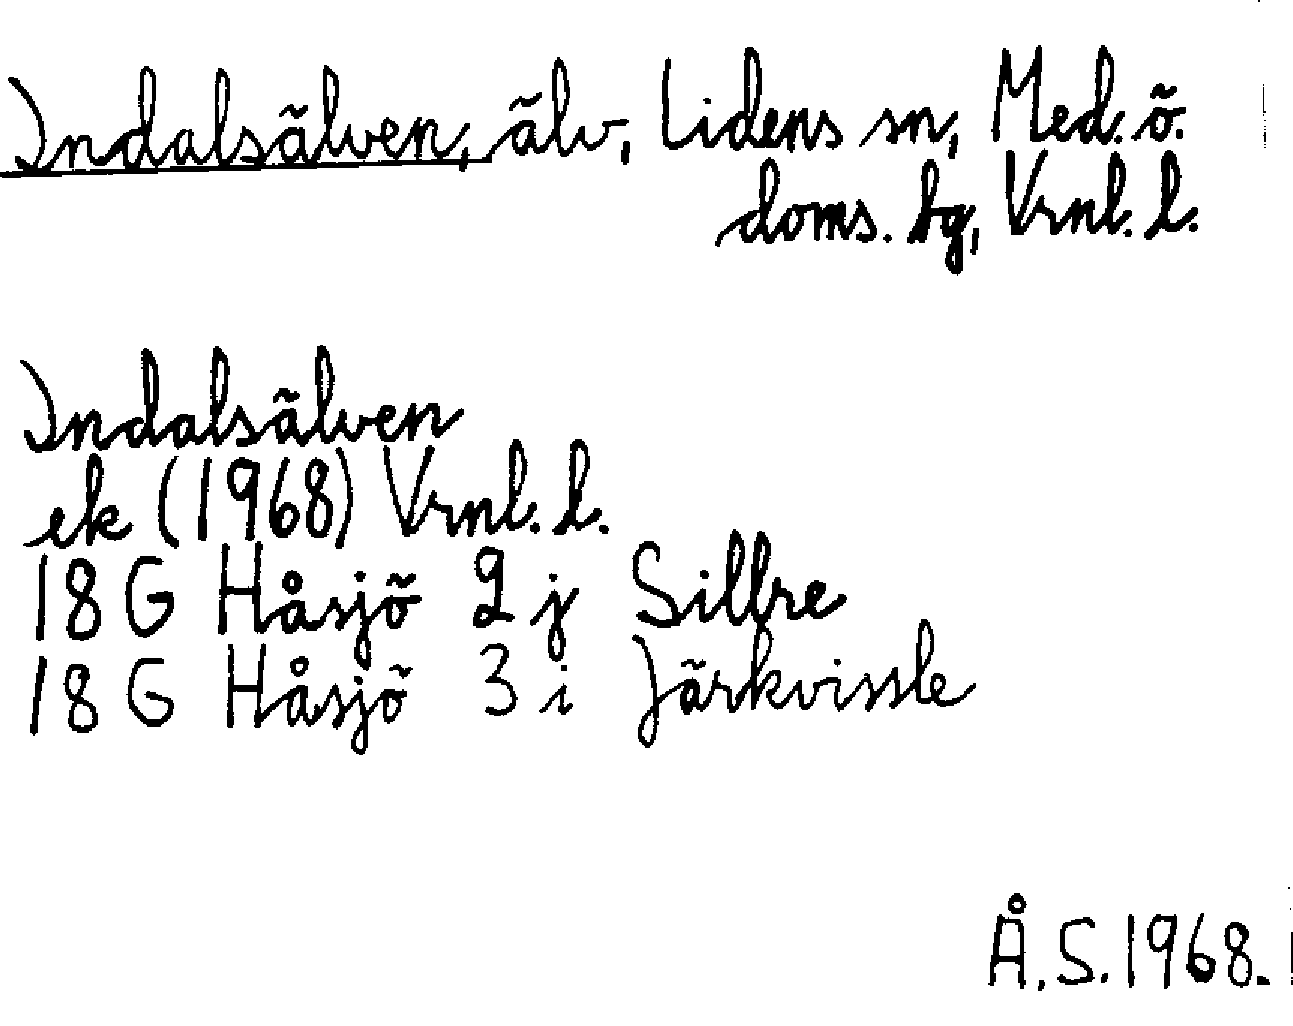 Indalsälven, älv, Lidens sn, Med. ö.
doms. sg, Vrnl. l.
Indalsälven
ek (1968) Vrnl. l.
18 G Håsjö 2 j Sillre
18 G Håsjö 3 i Järkvissle
Å. S. 1968.